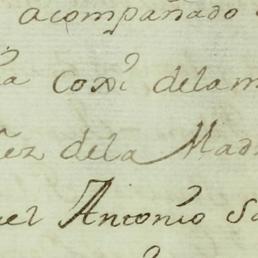 acompañado
Coxi dela m
ez dela Mad
el Antonio Sa